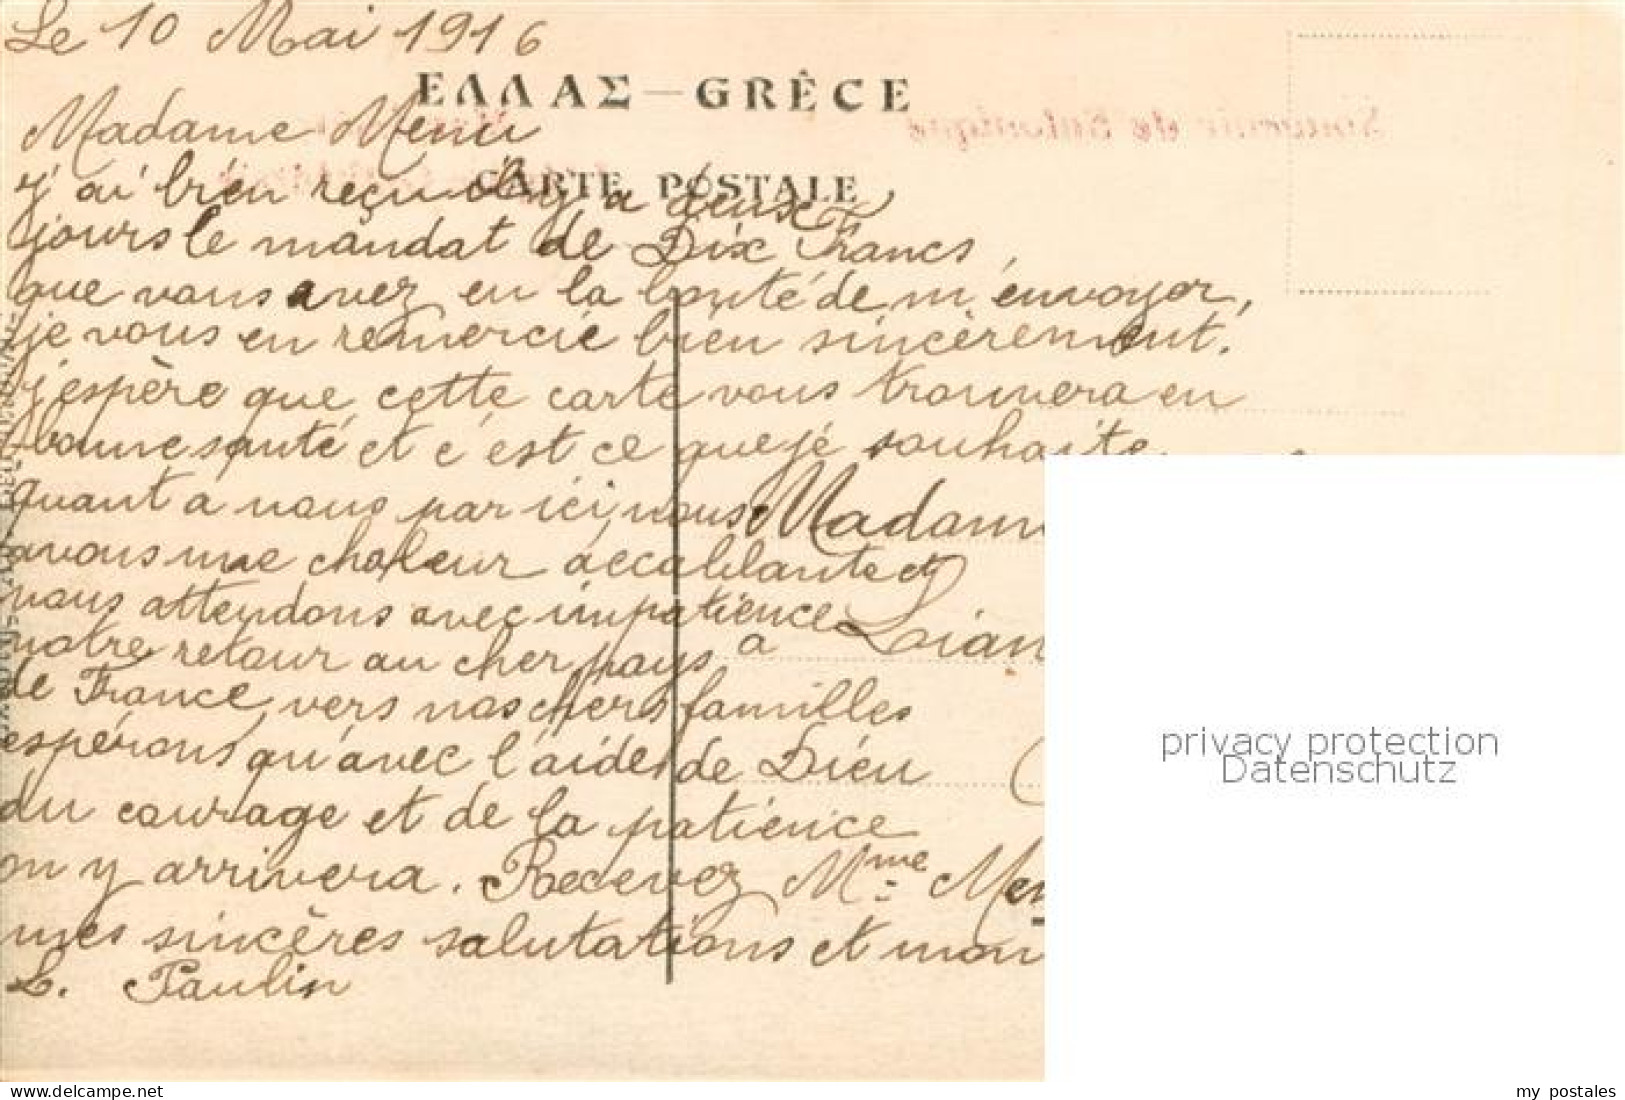 Le 10 Mai 1916
ΕΛΛΑΣ — GRÊCE
Madame Menu
Souvenir de Salonique
CARTE POSTALE
j'ai bien reçu il y a deux
jours le mandat de Dix Francs,
que vous avez eu la bonté de m'envoyer,
je vous en remercie bien sincèrement.
j'espère que cette carte vous trouvera en
bonne santé et c'est ce que je souhaite
quant à nous par ici, nous
avons une chaleur accablante et
nous attendons avec impatience
notre retour au cher pays
de France vers nos chers familles
espérons qu'avec l'aide de Dieu
du courage et de la patience
on y arrivera. Recevez Mme Men
mes sincères salutations et mon
L. Paulin
Madam
à Lian
privacy protection
Datenschutz
my postales
www.delcampe.net